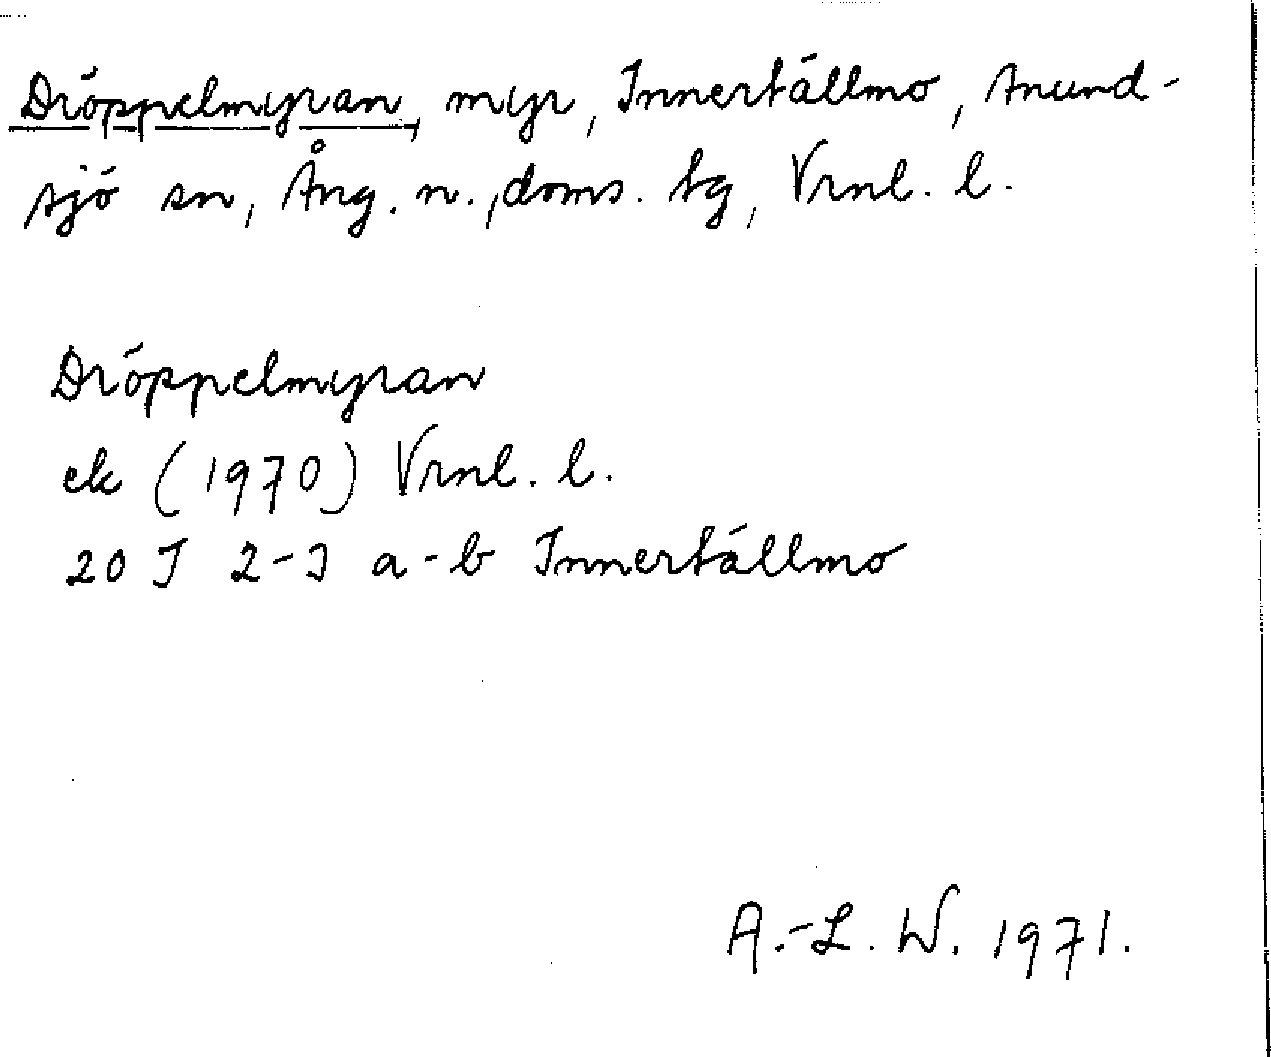 Dröppelmyran, myr, Innertällmo, Anund-
sjö sn, Ång. n., doms. tg, Vrnl. l.
Dröppelmyran
ek (1970) Vrnl. l.
20 J 2-3 a-b Innertällmo
A.-L. W. 1971.